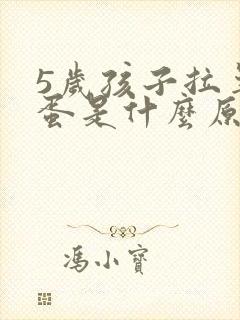 5歲孩子拉
蛋是什麼原
馮小寶